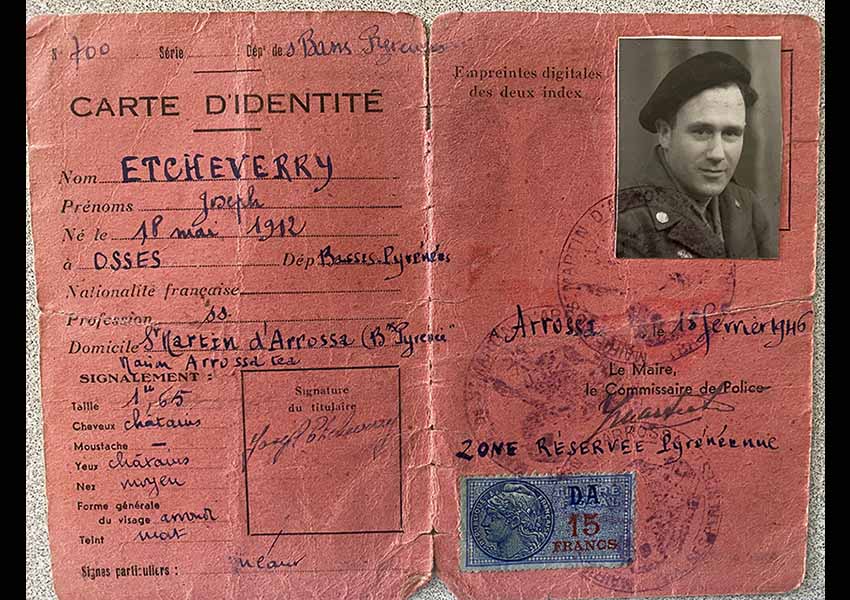 N° 700 Série Dép' de s Bass Pyrenees
CARTE D'IDENTITÉ
Nom ETCHEVERRY
Prénoms Joseph
Né le 18 mai 1912
à OSSES Dép Basses-Pyrénées
Nationalité française
Profession ss
Domicile St Martin d'Arrossa (Bses Pyrénées
Arrossa
SIGNALEMENT :
Taille 1m,65
Cheveux châtains
Moustache –
Yeux châtains
Nez moyen
Forme générale
du visage
Teint mat
Signes particuliers : néant
Signature
du titulaire
Empreintes digitales
des deux index
A Arrossa le 18 février 1946
Le Maire,
le Commissaire de Police
ZONE RÉSERVÉE Pyrénéenne
DA
15
FRANCS